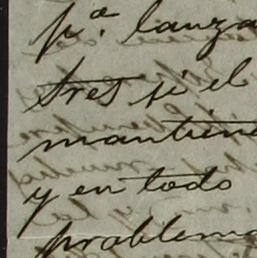 p.ª lanza
tres si el
mantiene
y en todo
problema